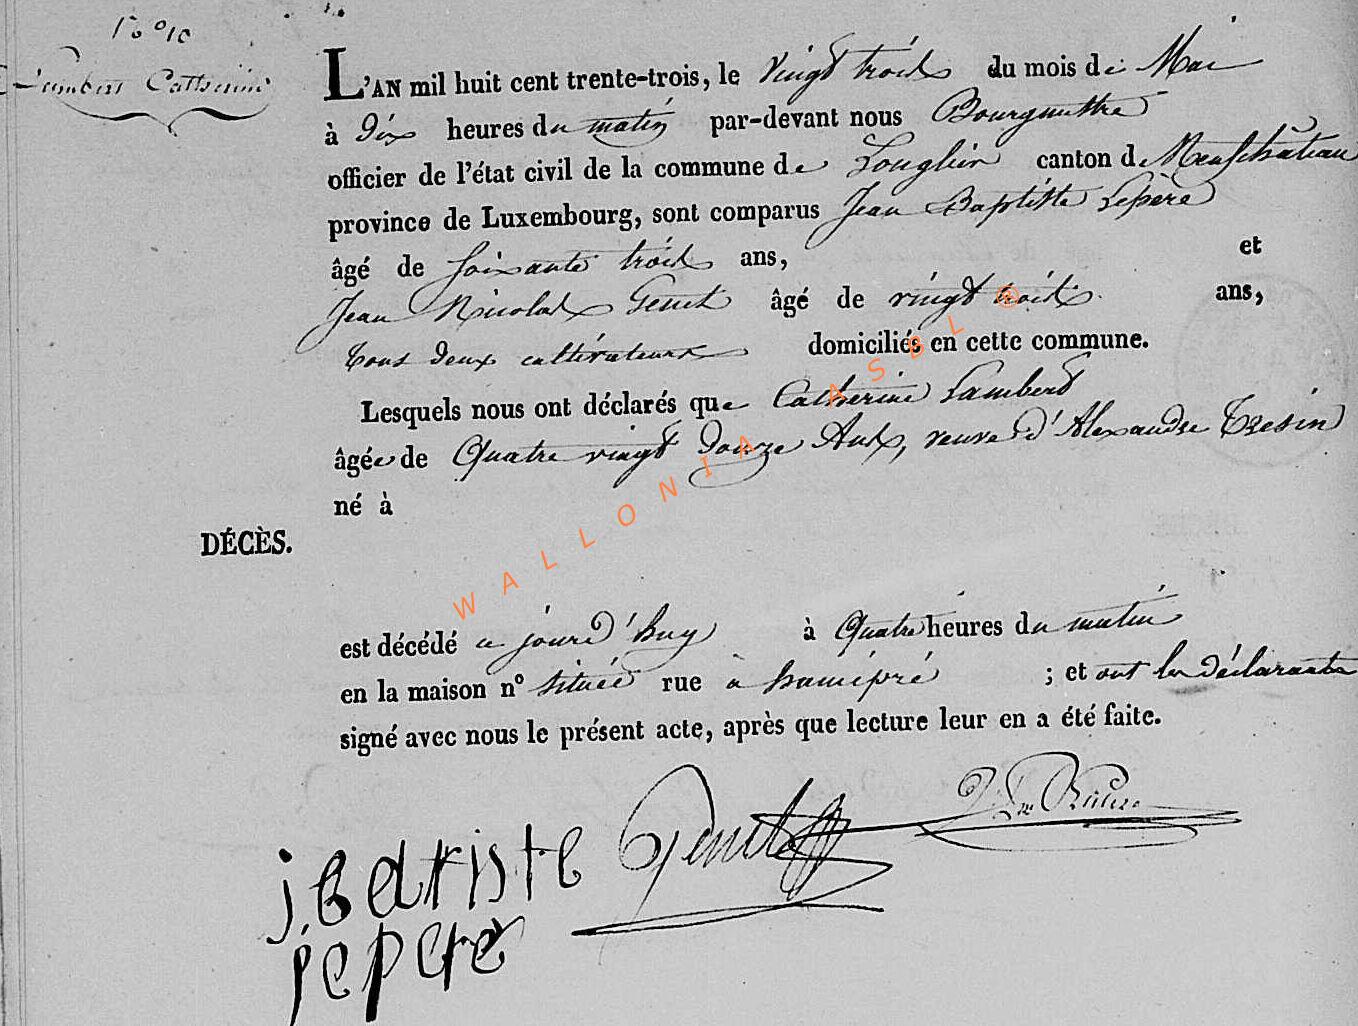 N° 10
Lambert Catherine
L'AN mil huit cent trente-trois, le vingt trois du mois de Mai
à dix heures du matin par-devant nous Bourgmestre
officier de l'état civil de la commune de Longlier canton de Neufchâteau
province de Luxembourg, sont comparus Jean Baptiste Lepère
âgé de soixante trois ans, et
Jean Nicolas Genet âgé de vingt trois ans,
tous deux cultivateurs domiciliés en cette commune.
Lesquels nous ont déclarés que Catherine Lambert
âgée de Quatre vingt douze Ans, veuve d'Alexandre Tresin
né à
DÉCÈS.
est décédé ce jourd'huy à Quatre heures du matin
en la maison n° située rue à hamipré ; et ont les déclarants
signé avec nous le présent acte, après que lecture leur en a été faite.
jbatiste Genet
jepere
WALLONIA ASBL ®